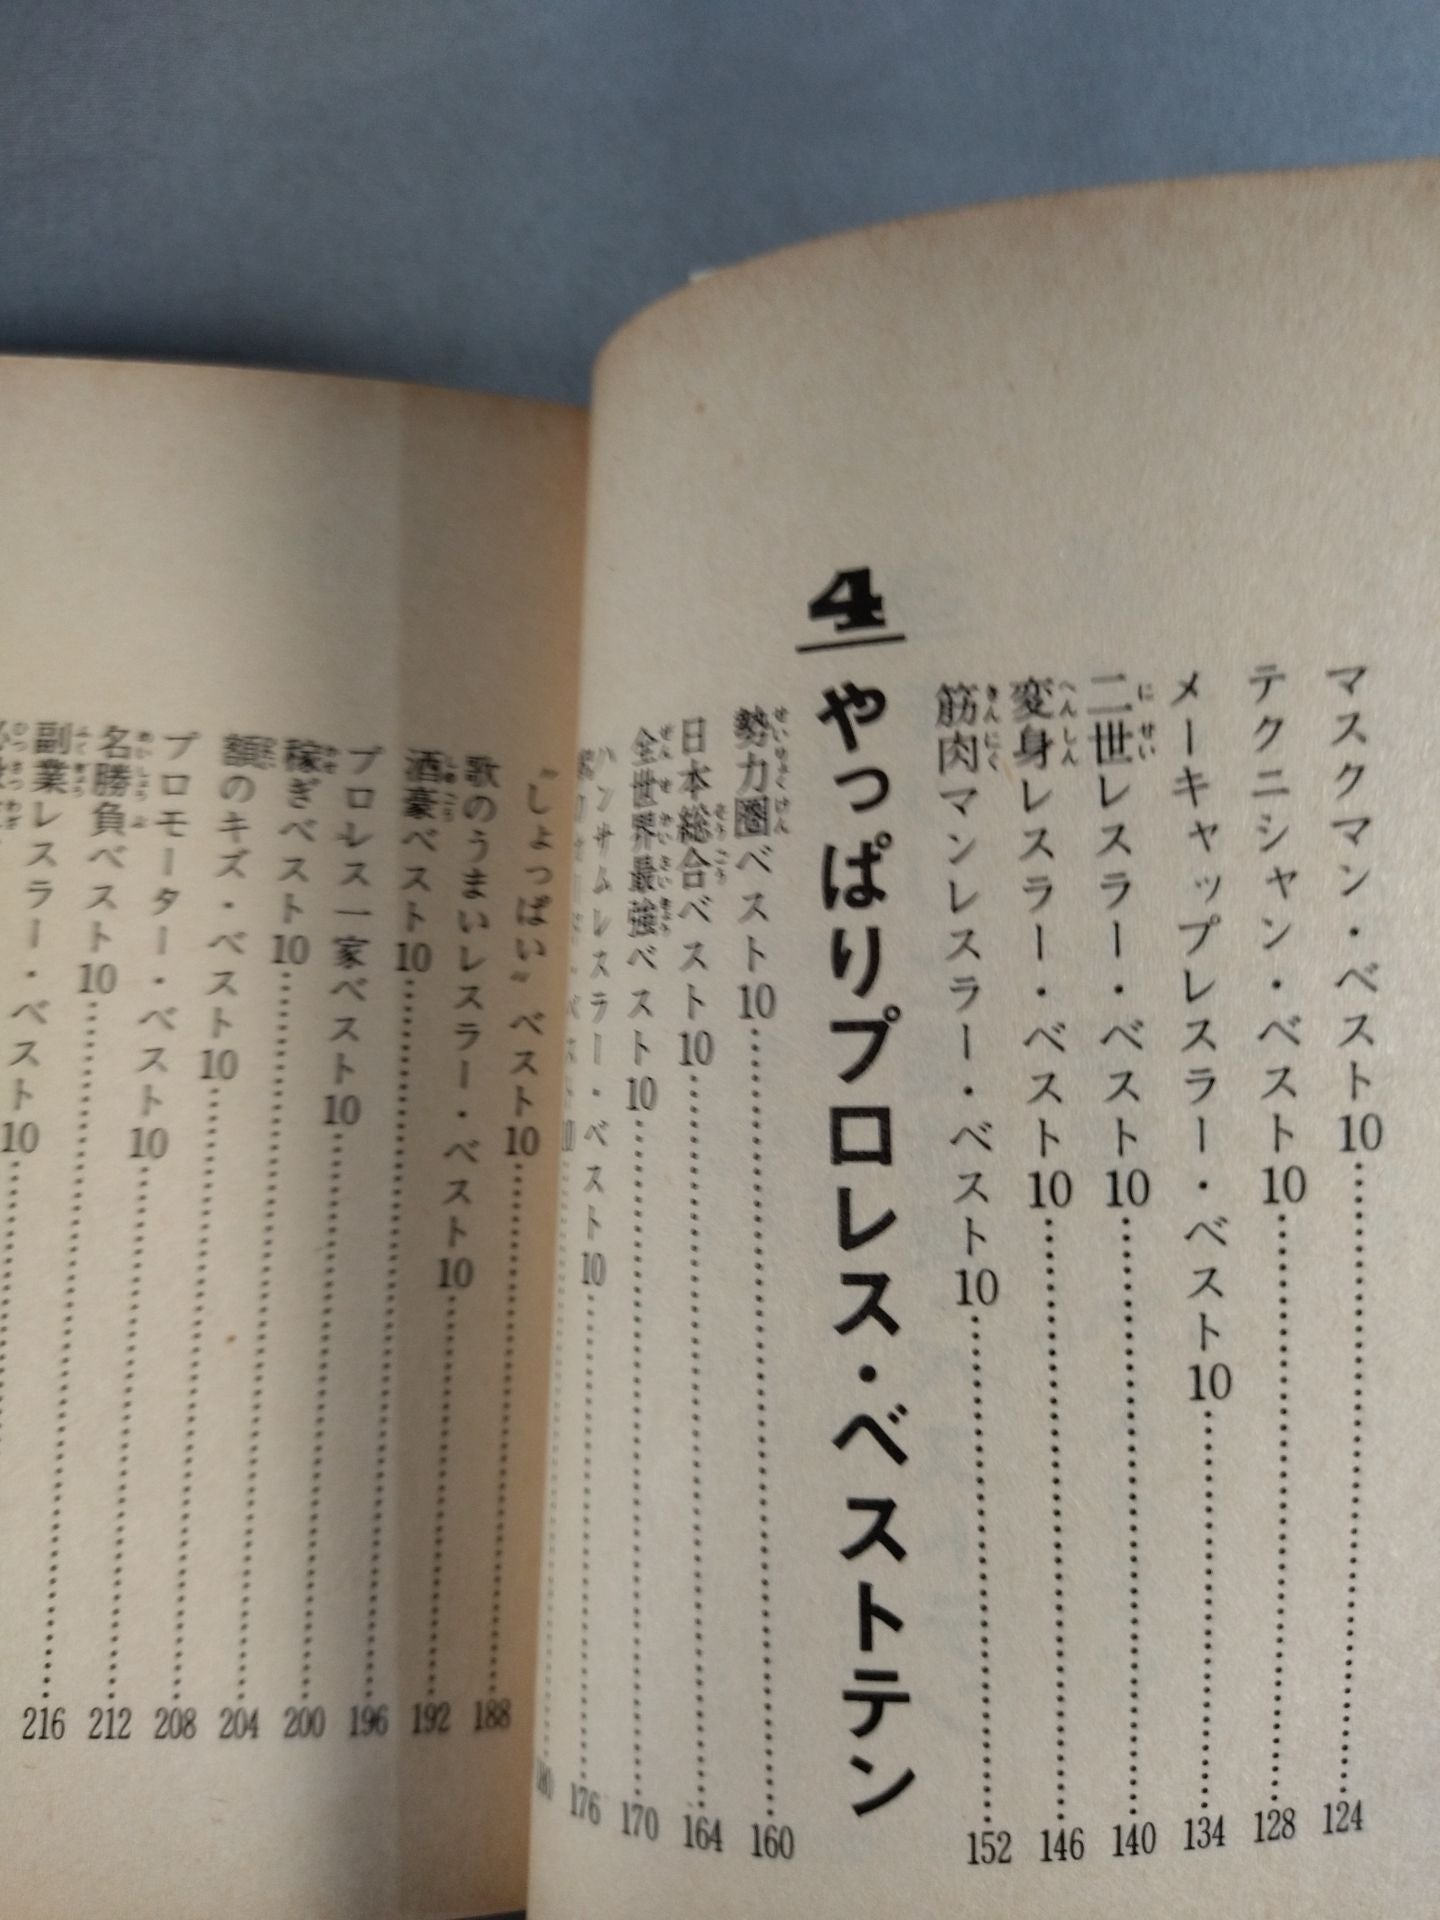 マスクマン・ベスト10……124
テクニシャン・ベスト10……128
メーキャップレスラー・ベスト10……134
二世レスラー・ベスト10……140
変身レスラー・ベスト10……146
筋肉マンレスラー・ベスト10……152
4 やっぱりプロレス・ベストテン
勢力圏ベスト10……160
日本総合ベスト10……164
全世界最強ベスト10……170
ハンサムレスラー・ベスト10……176
ベスト10……180
〝しょっぱい〟ベスト10……188
歌のうまいレスラー・ベスト10……192
酒豪ベスト10……196
プロレス一家ベスト10……200
稼ぎベスト10……204
額のキズ・ベスト10……208
プロモーター・ベスト10……212
名勝負ベスト10……216
副業レスラー・ベスト10